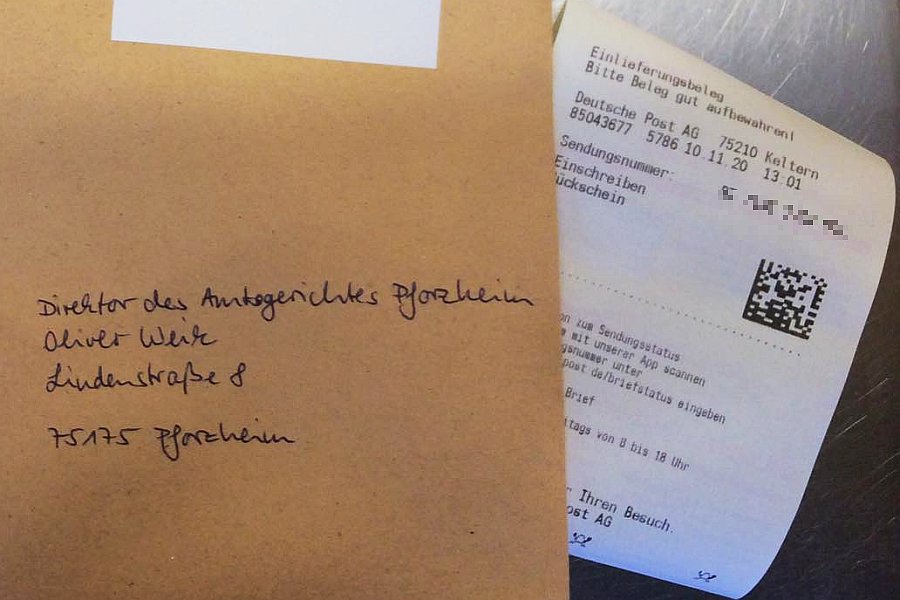 Direktor des Amtsgerichtes Pforzheim
Oliver Weik
Lindenstraße 8
75175 Pforzheim
Einlieferungsbeleg
Bitte Beleg gut aufbewahren!
Deutsche Post AG 75210 Keltern
85043677 5786 10.11.20 13:01
Sendungsnummer:
Einschreiben
ückschein
on zum Sendungsstatus
e mit unserer App scannen
gsnummer unter
post de/briefstatus eingeben
Brief
itags von 8 bis 18 Uhr
r Ihren Besuch.
ost AG